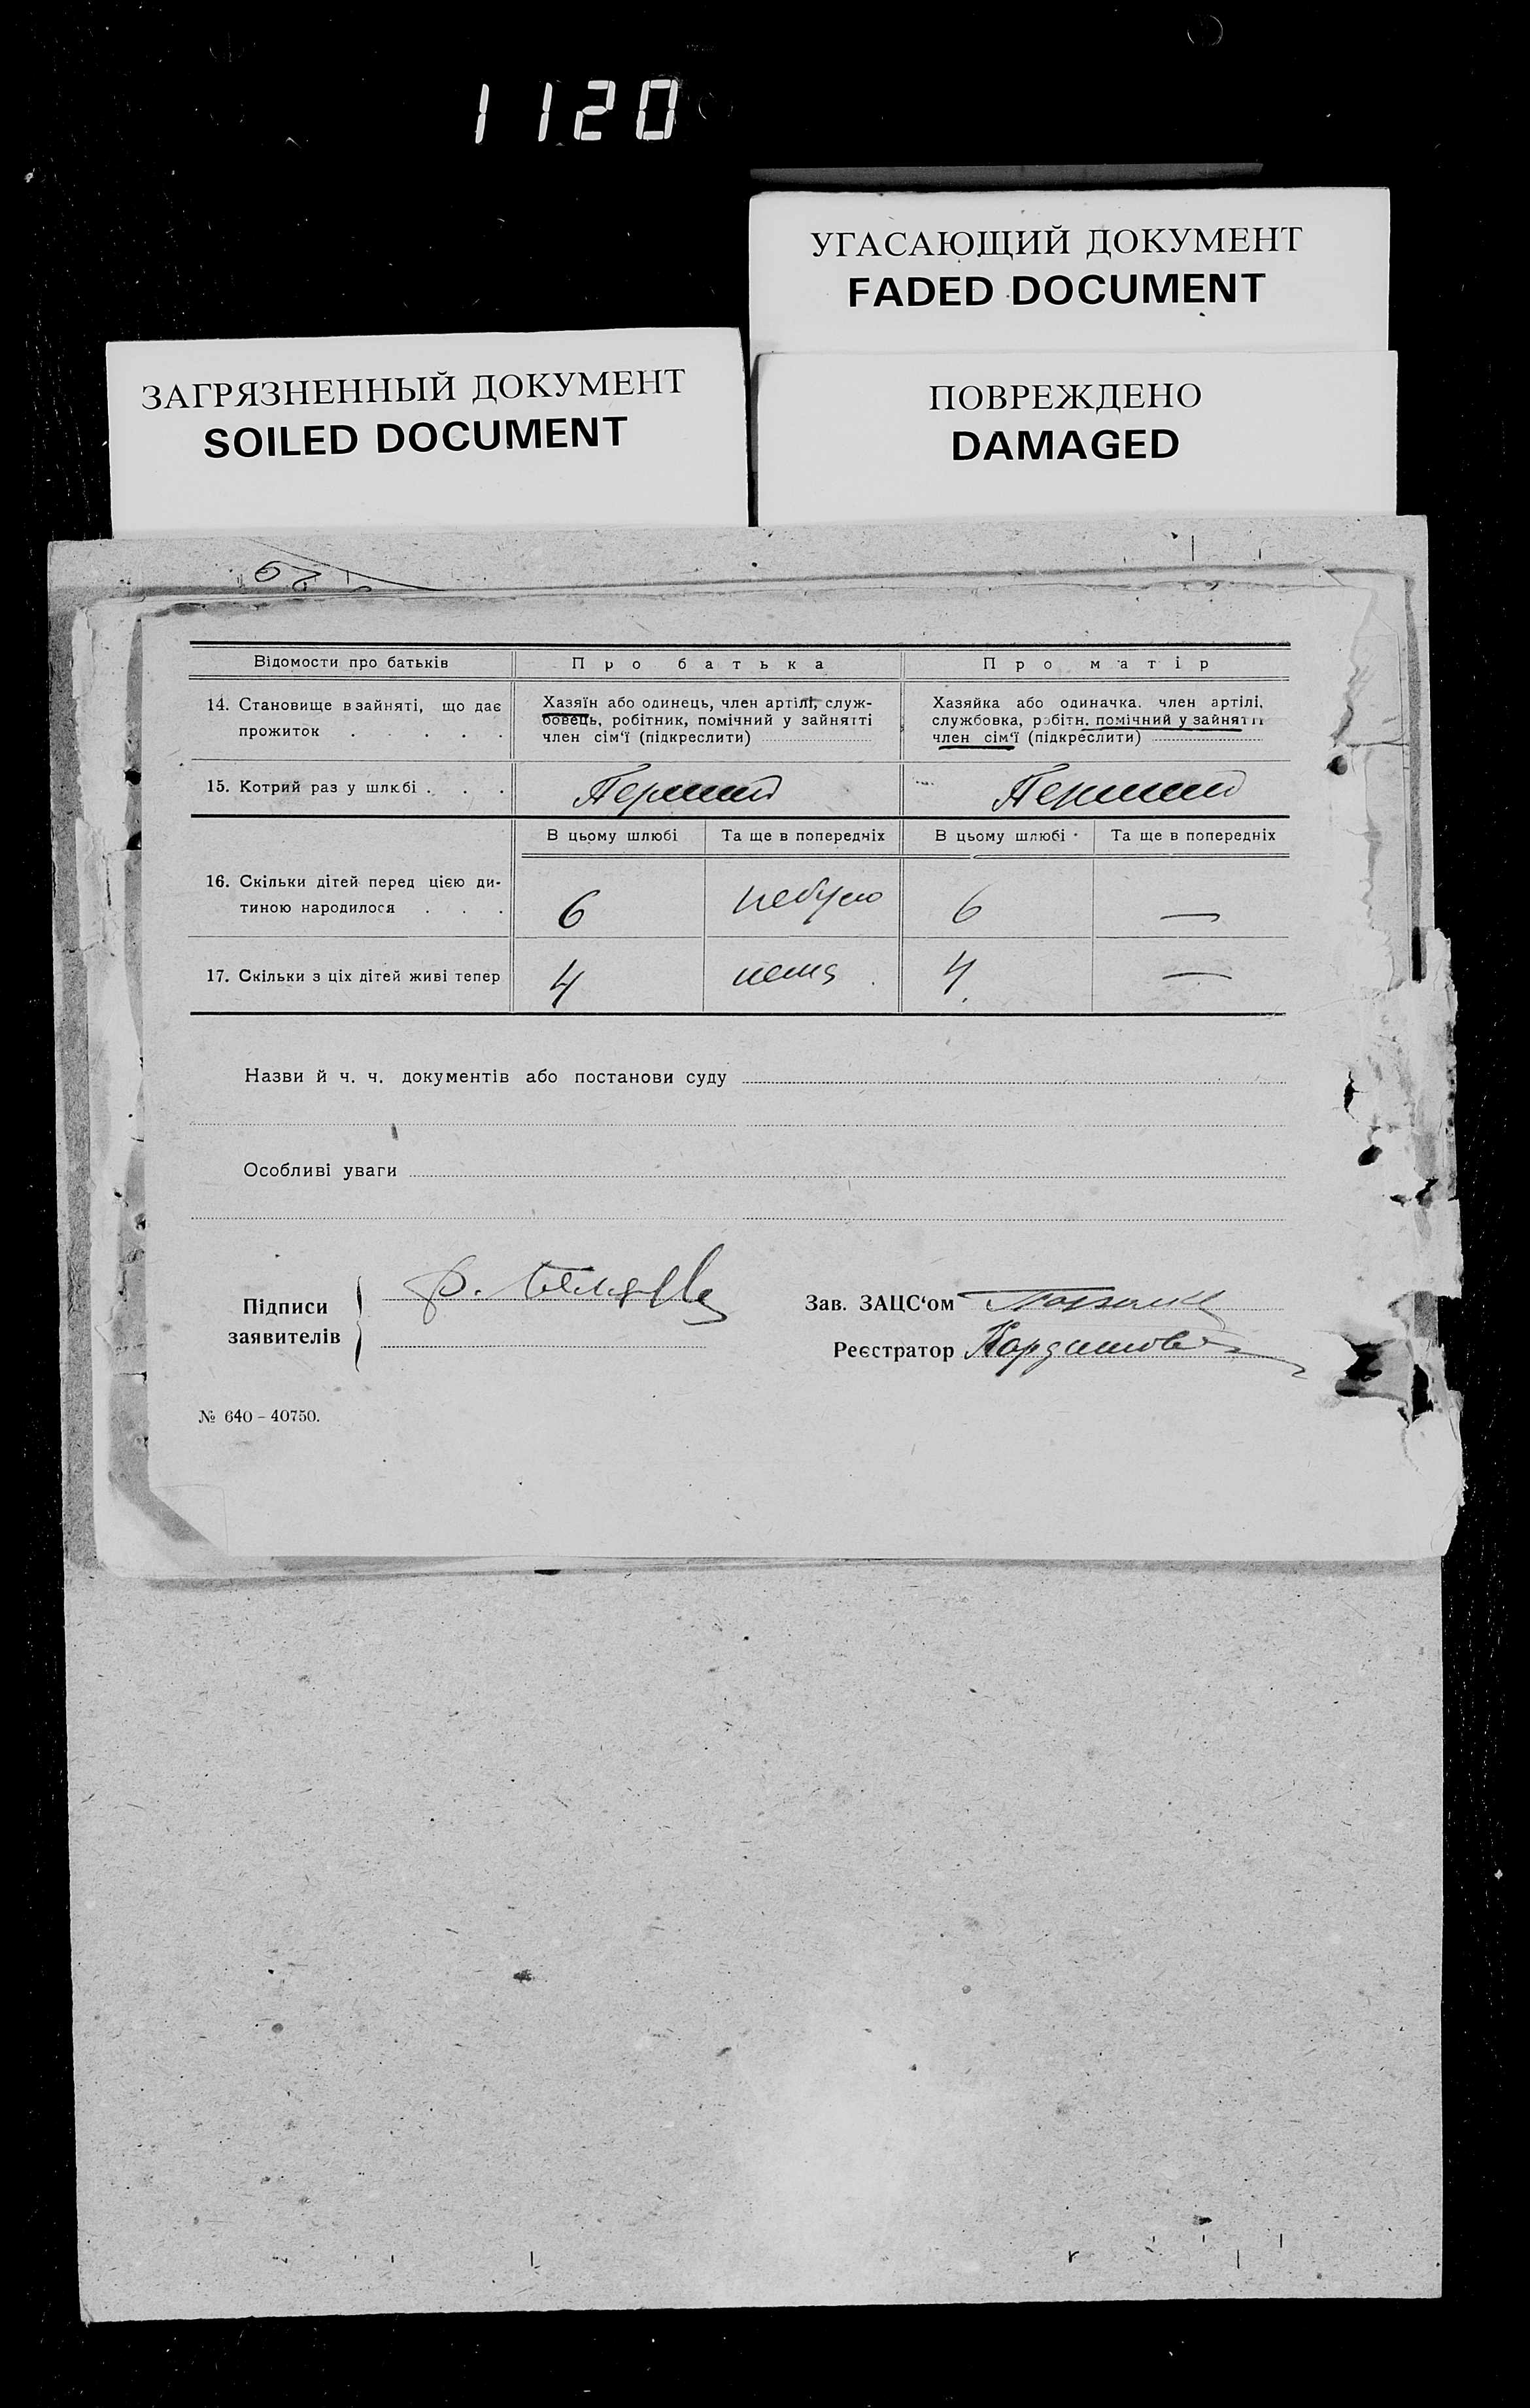 1120
УГАСАЮЩИЙ ДОКУМЕНТ
FADED DOCUMENT
ЗАГРЯЗНЕННЫЙ ДОКУМЕНТ
SOILED DOCUMENT
ПОВРЕЖДЕНО
DAMAGED
Відомости про батьків
Про батька
Про матір
14. Становище в зайняті, що дає
прожиток . . . . .
Хазяїн або одинець, член артілі, служ-
бовець, робітник, помічний у зайнятті
член сім‘ї (підкреслити)
Хазяйка або одиначка. член артілі,
службовка, робітн. помічний у зайнятті
член сім‘ї (підкреслити)
15. Котрий раз у шлюбі . . .
Перший
Перший
В цьому шлюбі
Та ще в попередніх
В цьому шлюбі
Та ще в попередніх
16. Скільки дітей перед цією ди-
тиною народилося . . .
6
небуло
6
—
17. Скільки з ціх дітей живі тепер
4
нема
4
—
Назви й ч. ч. документів або постанови суду
Особливі уваги
Підписи
заявителів
Зав. ЗАЦС‘ом
Реєстратор
№ 640 – 40750.